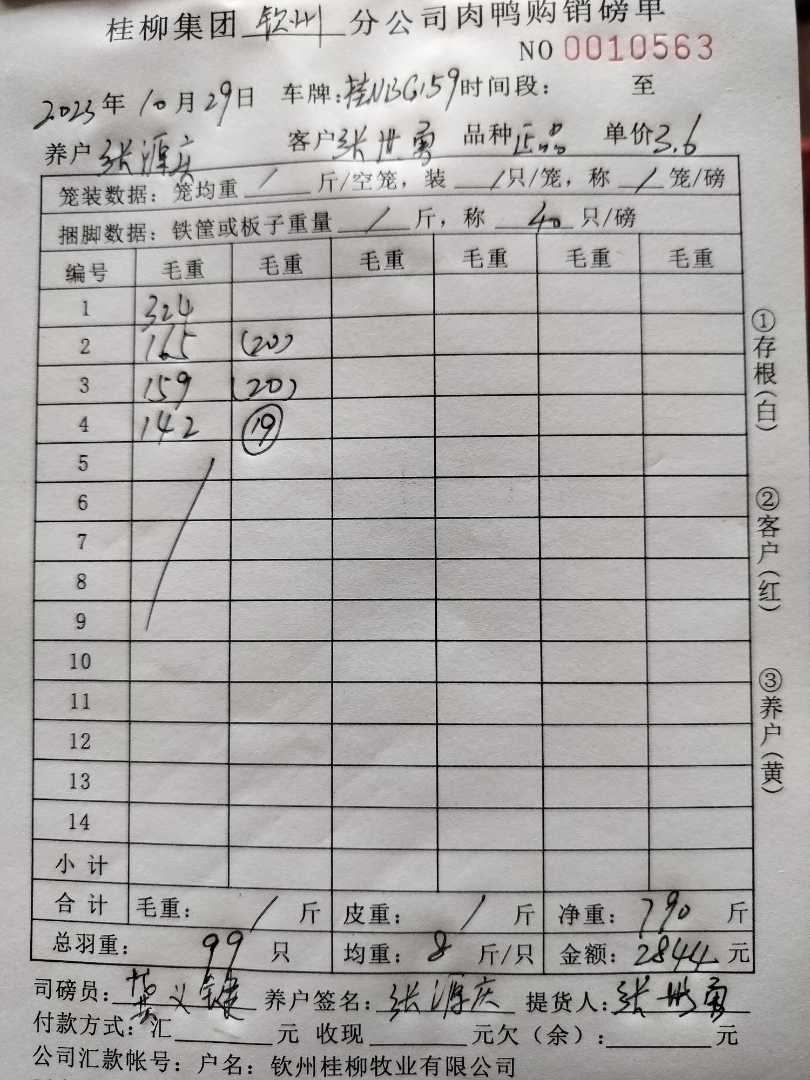 桂柳集团 钦州 分公司肉鸭购销磅单
NO 0010563
2023年10月29日 车牌:桂NBG159 时间段: 至
养户 张源庆 客户 张世勇 品种 正品 单价3.6
笼装数据: 笼均重 / 斤/空笼, 装 / 只/笼, 称 / 笼/磅
捆脚数据: 铁筐或板子重量 / 斤, 称 40 只/磅
编号 毛重 毛重 毛重 毛重 毛重 毛重
1 324
2 165 (20)
3 159 (20)
4 142 ⑲
5
6
7
8
9
10
11
12
13
14
小计
合计 毛重: / 斤 皮重: / 斤 净重: 790 斤
总羽重: 99 只 均重: 8 斤/只 金额: 2844 元
司磅员: 义健 养户签名: 张源庆 提货人: 张世勇
付款方式: 汇 元 收现 元欠(余): 元
公司汇款帐号: 户名: 钦州桂柳牧业有限公司
①存根(白)
②客户(红)
③养户(黄)